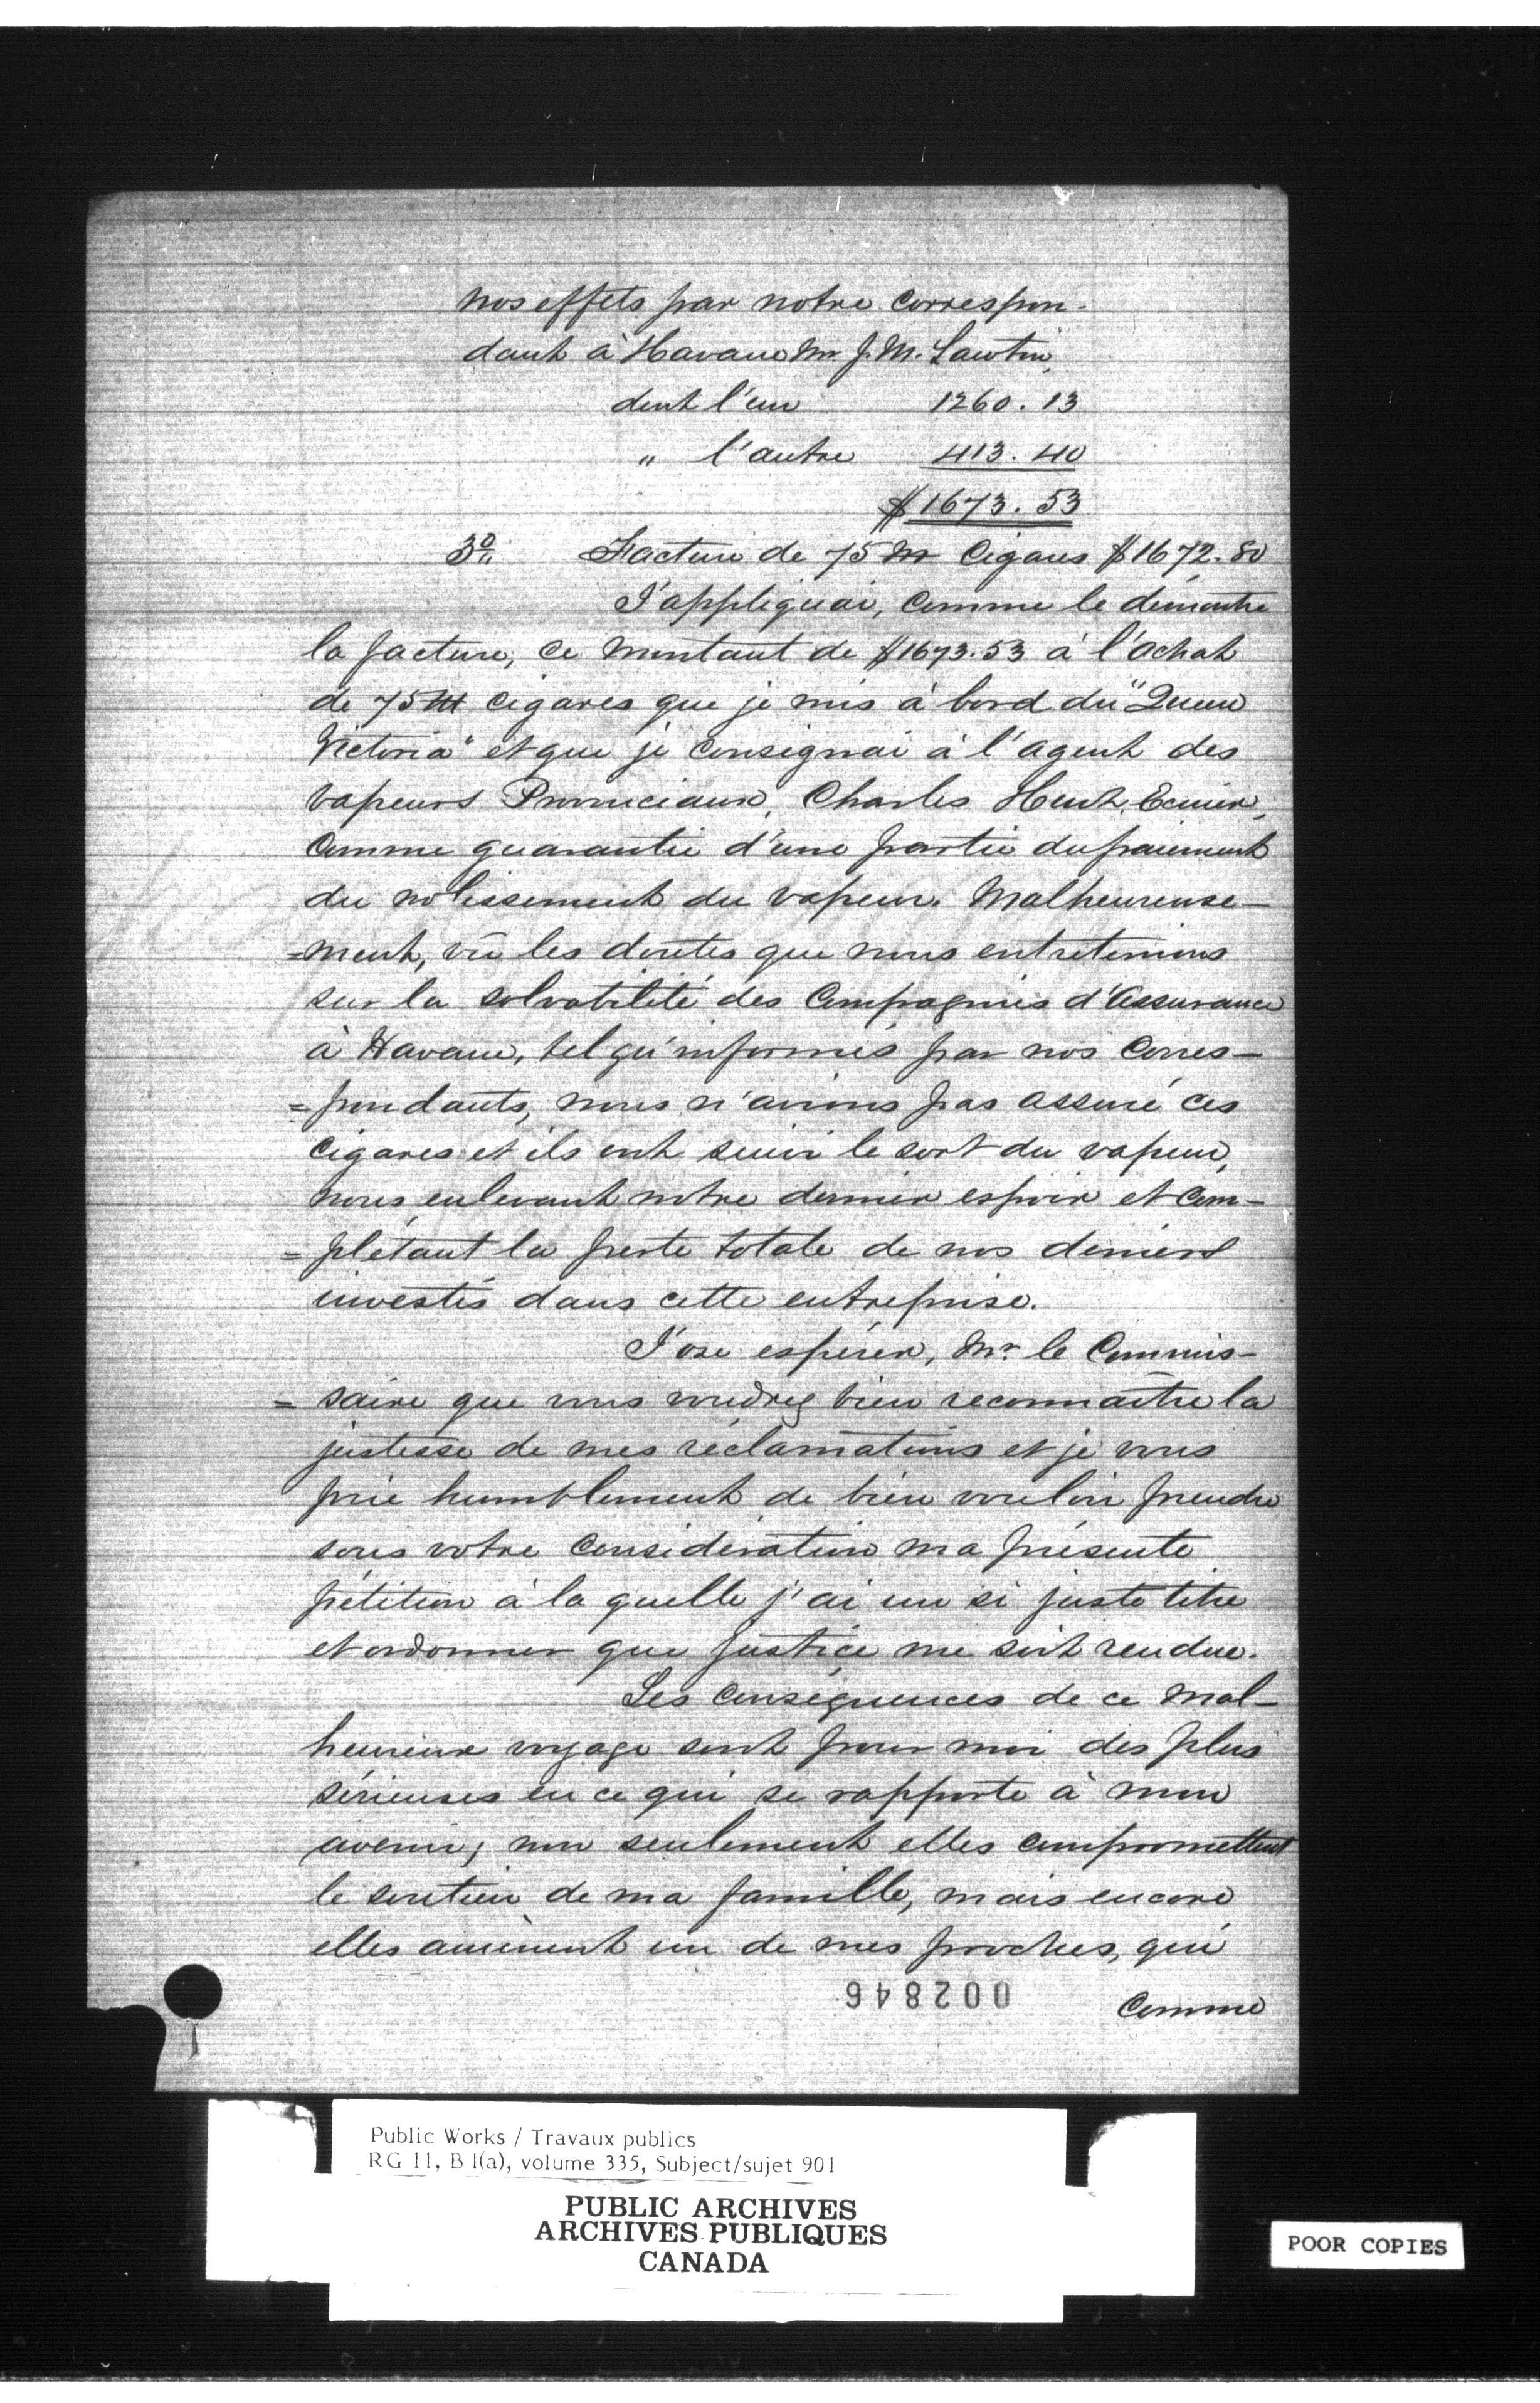 nos effets par notre correspon-
dant à Havane Mr. J. M. Lawton,
dont l'un 1260.13
" l'autre 413.40
$1673.53
3o. Facture de 75 M Cigares $1672.80
J'appliquai, comme le démontre
la facture, ce montant de $1673.53 à l'achat
de 75 M cigares que je mis à bord du "Queen
Victoria" et que je consignai à l'agent des
vapeurs Provinciaux, Charles Hunt, Ecuier,
comme guarantie d'une partie du paiement
du nolissement du vapeur. Malheureuse-
=ment, vû les doutes que nous entretenions
sur la solvabilité des Compagnies d'Assurance
à Havane, tel qu'informés par nos Corres-
=pondants, nous n'avions pas assuré ces
cigares et ils ont suivi le sort du vapeur,
nous enlevant notre dernier espoir et com-
=plétant la perte totale de nos deniers
investis dans cette entreprise.
J'ose espérer, Mr. le Commis-
=saire que vous voudrez bien reconnaître la
justesse de mes réclamations et je vous
prie humblement de bien vouloir prendre
sous votre considération ma présente
pétition à la quelle j'ai un si juste titre
et ordonner que justice me soit rendue.
Les conséquences de ce mal-
heureux voyage sont pour moi des plus
sérieuses en ce qui se rapporte à mon
avenir; non seulement elles compromettent
le soutien de ma famille, mais encore
elles amènent un de mes proches, qui
comme
002846
Public Works / Travaux publics
RG 11, B 1(a), volume 335, Subject/sujet 901
PUBLIC ARCHIVES
ARCHIVES PUBLIQUES
CANADA
POOR COPIES